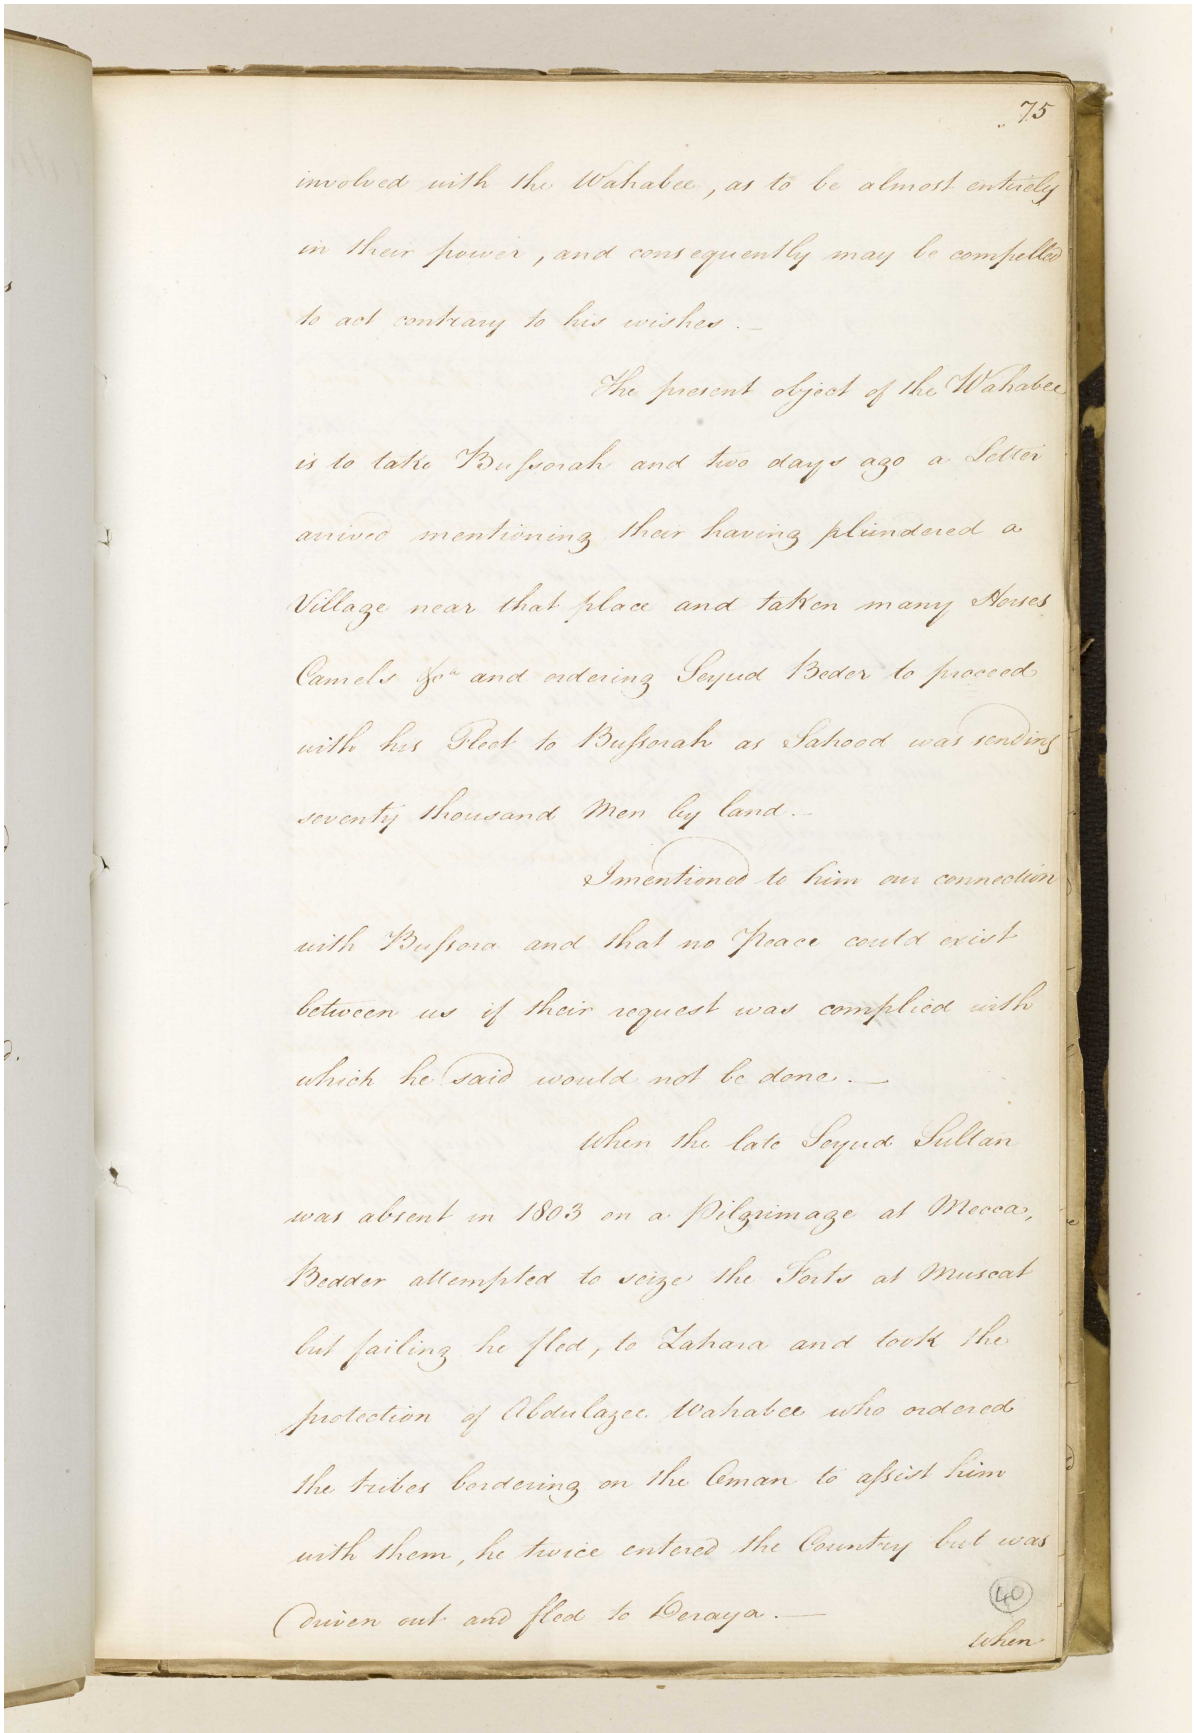 75
involved with the Wahabee, as to be almost entirely
in their power, and consequently may be compelled
to act contrary to his wishes. —
The present object of the Wahabee
is to take Bussorah and two days ago a Letter
arrived mentioning their having plundered a
Village near that place and taken many Horses
Camels &ca and ordering Seyud Beder to proceed
with his Fleet to Bussorah as Sahood was sending
seventy thousand Men by land. —
I mentioned to him our connection
with Bussora and that no Peace could exist
between us if their request was complied with
which he said would not be done. —
When the late Seyud Sultan
was absent in 1803 on a Pilgrimage at Mecca,
Bedder attempted to seize the Forts at Muscat
but failing he fled, to Zahara and took the
protection of Abdulazee Wahabee who ordered
the tribes bordering on the Oman to assist him
with them, he twice entered the Country but was
driven out and fled to Deraya. —
40
When